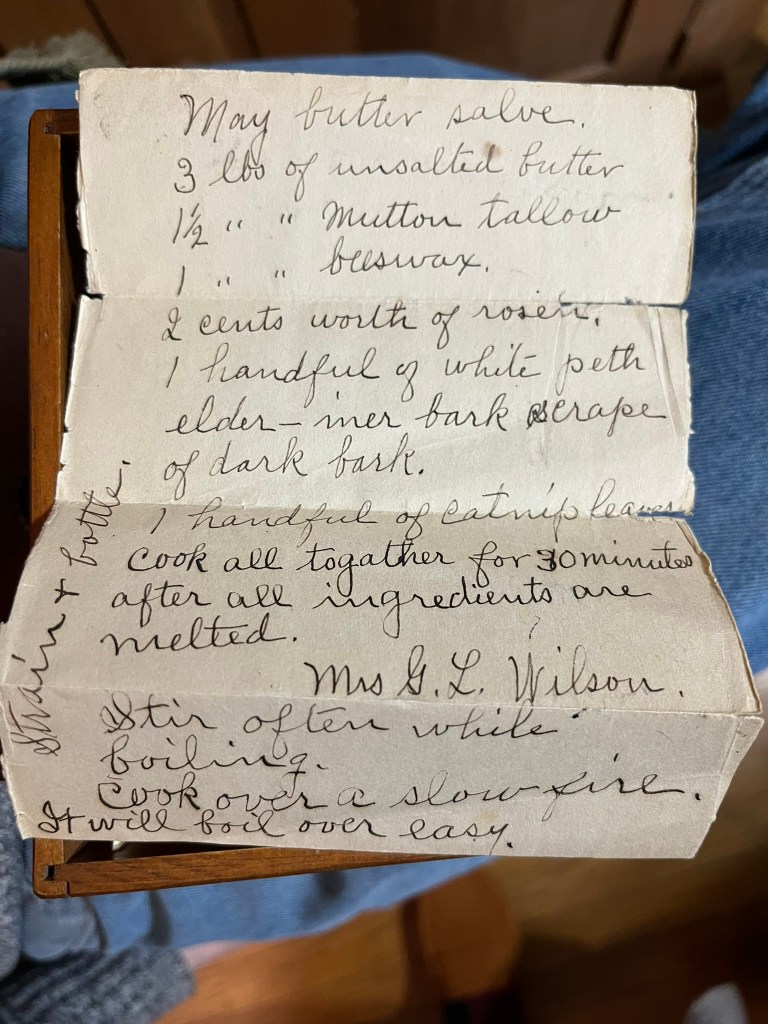 May butter salve.
3 lbs of unsalted butter
1½ " " Mutton tallow
1 " " beeswax.
2 cents worth of rosen.
1 handful of white peth
elder - iner bark scrape
of dark bark.
1 handful of catnip leaves
Cook all togather for 30 minutes
after all ingredients are
melted.
Mrs G. L. Wilson.
Stir often while
boiling.
Cook over a slow fire.
It will boil over easy.
Strain + bottle.